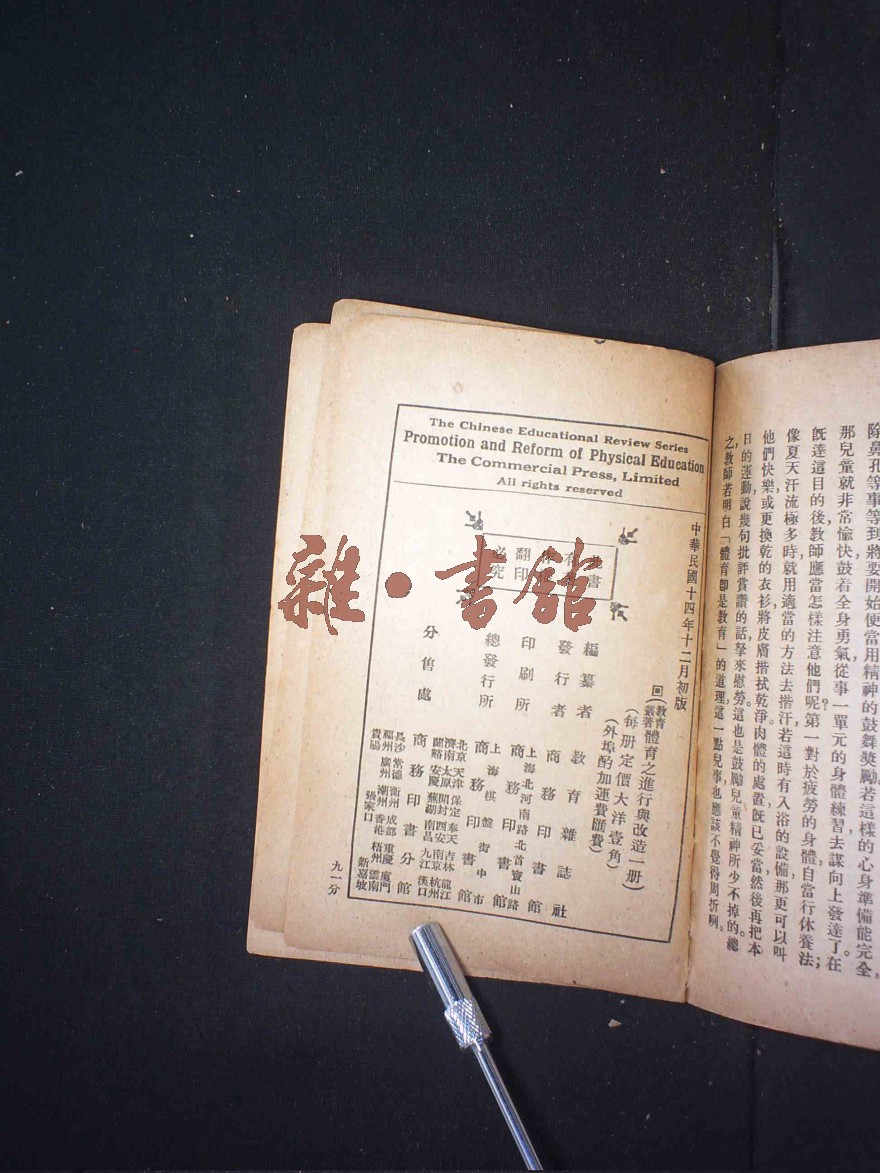 除鼻孔等事等到將要開始便當用精神的鼓舞獎勵若這樣的心身準備能完全,
那兒童就非常愉快鼓着全身勇氣從事一單元的身體練習去謀向上發達了在
既達這目的後教師應當怎樣注意他們呢?第一對於疲勞的身體自當行休養法;
像夏天汗流極多時就用適當的方法去揩汗若這時有入浴的設備那更可以叫
他們快樂或更換乾的衣衫將皮膚揩拭乾淨肉體的處置既已妥當然後再把本
日的運動說幾句批評賞讚的話拏來慰勞。這也是鼓勵兒童精神所少不掉的。總
之教師若明白「體育卽是教育」的道理這一點兒事也應該不覺得周折咧。
The Chinese Educational Review Series
Promotion and Reform of Physical Education
The Commercial Press, Limited
All rights reserved
中華民國十四年十二月初版
(教育叢著)體育之進行與改造一册
(每册定價大洋壹角)
(外埠酌加運費匯費)
此書有著作權翻印必究
編纂者 教育雜誌社
發行者 商務印書館
印刷所 上海北河南路北首寶山路 商務印書館
總發行所 上海棋盤街中市 商務印書館
分售處 商務印書分館
北京 天津 保定 奉天 吉林 龍江
濟南 太原 開封 西安 南京 杭州
蘭谿 安慶 蕪湖 南昌 九江 漢口
長沙 常德 衡州 成都 重慶 廈門
福州 廣州 潮州 香港 梧州 雲南
貴陽 張家口 新嘉坡
九一分
雜·書館